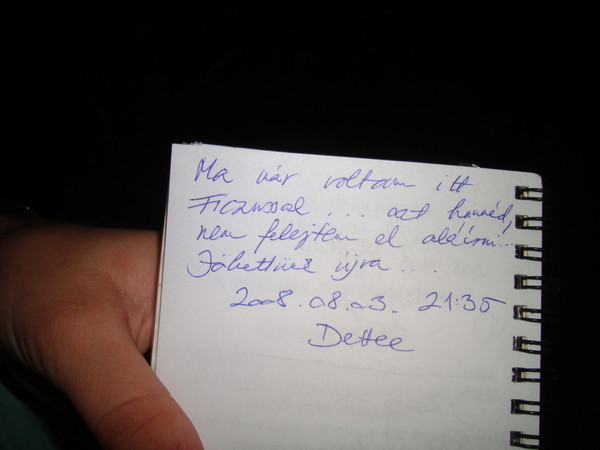 Ma már voltam itt
Ficzussal ... 
nem felejtem el aláírni...
Jöhettünk újra ...
2008.08.03.. 21:35
Dettee